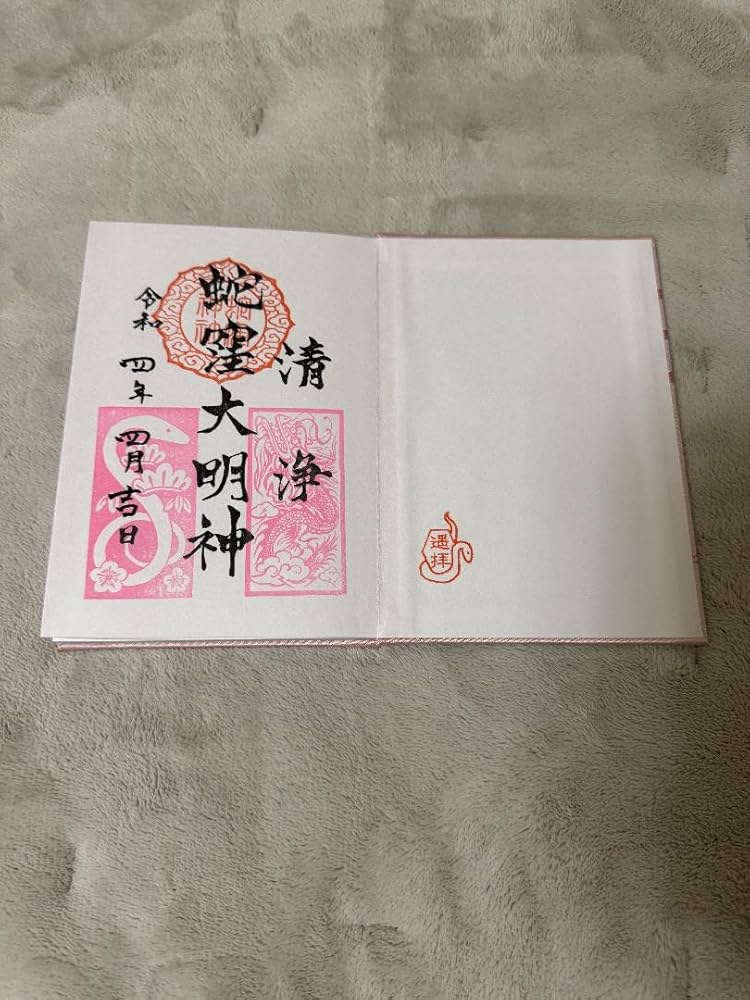 清浄
蛇窪大明神
令和四年四月吉日
遥拝